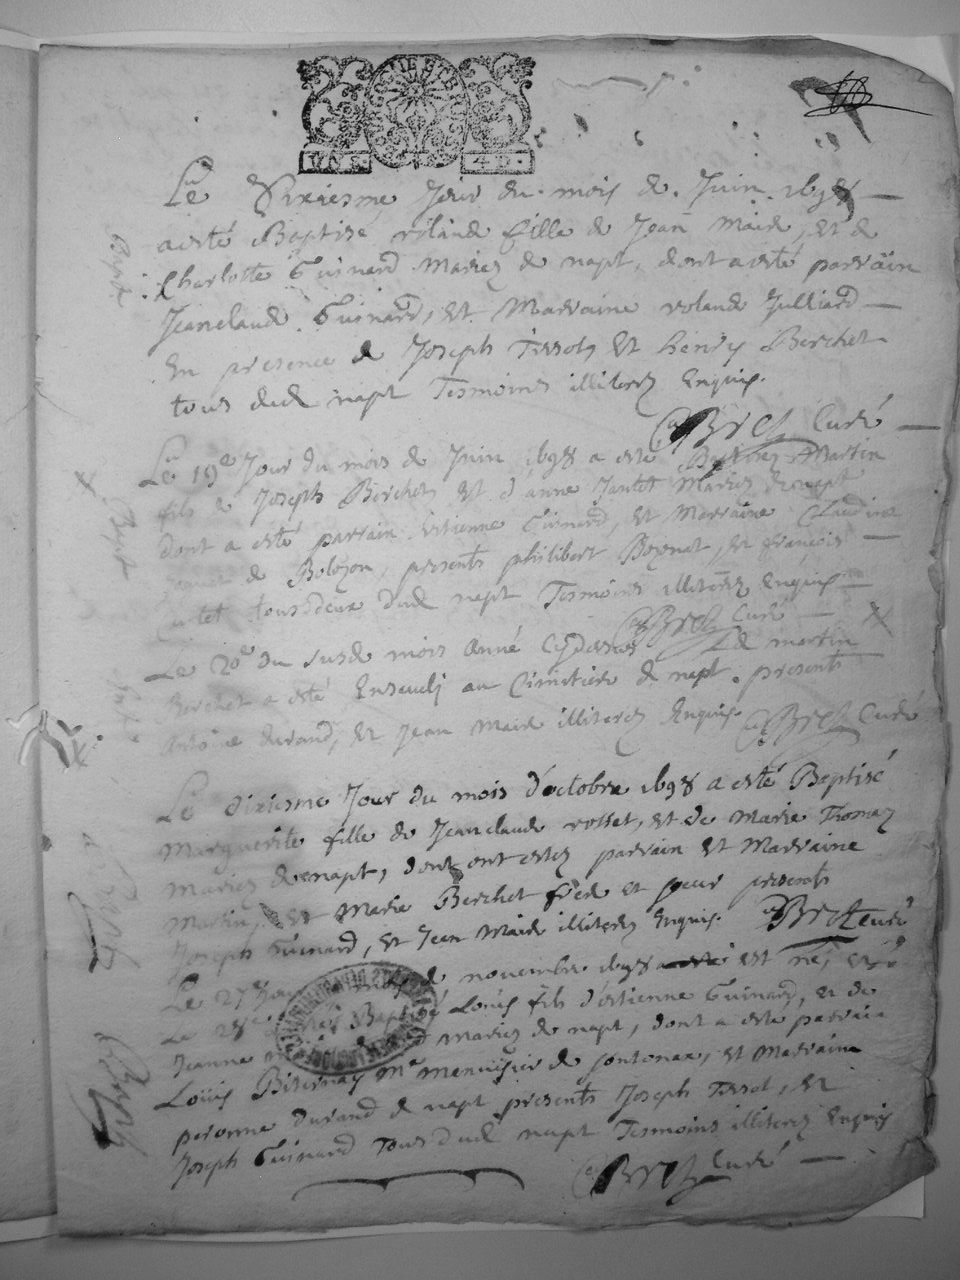 Le sixiesme Jour du mois de Juin 1698
a esté Baptisé rolande fille de Jean Maire, et de
Charlotte Guinard Mariez de napt, dont a esté parrain
Jeanclaude Guinard, et Marraine rolande Julliard
En presence de Joseph Tissot, et henry Berchet
tous dud. napt Tesmoins illiterez Enquis.
Bret Curé
Le 19e Jour du mois de Juin 1698 a esté Baptisez Martin
fils de Joseph Berchet, et d'anne Jantet Mariez de napt
dont a esté parrain estienne Guinard, et Marraine Claudine
de Bolozon, presents philibert Bozonat, et francois
tous deux dud. napt Tesmoins illiterez Enquis
Bret Curé
Le 20e du susd. mois année Cydessus Led. martin
Berchet a esté Enseveli au Cimetiere de napt. presents
Antoine durand, et Jean Maire illiterez Enquis.
Bret Curé
Le dixiesme Jour du mois d'octobre 1698 a esté Baptisé
Marguerite fille de Jeanclaude rosset, et de Marie Tomaz
Mariez de napt, dont ont estez parrain et Marraine
Martin, et Marie Berchet frere et soeur presents
Joseph Guinard, et Jean Maire illiterez Enquis.
Bret Curé
Le 27e Jour de novembre 1698 est né, et
Le 28e Baptisé Louis fils d'estienne Guinard, et de
Jeanne mariez de napt, dont a esté parrain
Louis me menuisier de sontonax, et Marraine
peronne durand de napt presents Joseph Tissot, et
Joseph Guinard tous dud. napt Tesmoins illiterez Enquis
Bret Curé